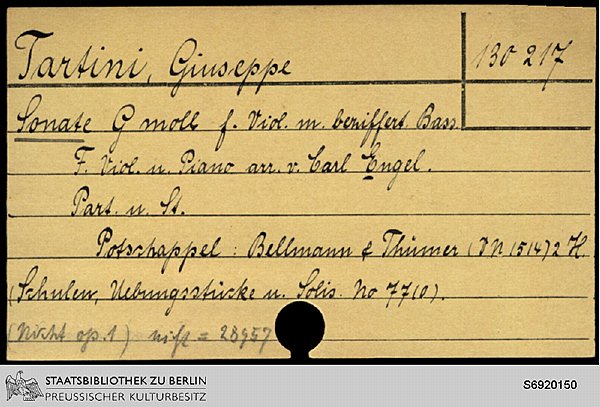 Tartini, Giuseppe
130 217
Sonate G moll f. Viol. m. beziffert. Bass
F. Viol. u. Piano arr. v. Carl Engel.
Part. u. St.
Potschappel : Bellmann & Thümer (VN 1514) 2 H.
(Schulen, Uebungsstücke u. Solis. No 77(0).
(Nicht op. 1) nicht = 28957
STAATSBIBLIOTHEK ZU BERLIN
PREUSSISCHER KULTURBESITZ
S6920150